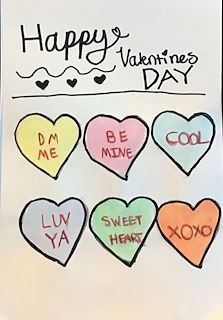 Happy
Valentines
DAY
DM
ME
BE
MINE
COOL
LUV
YA
SWEET
HEART
XOXO